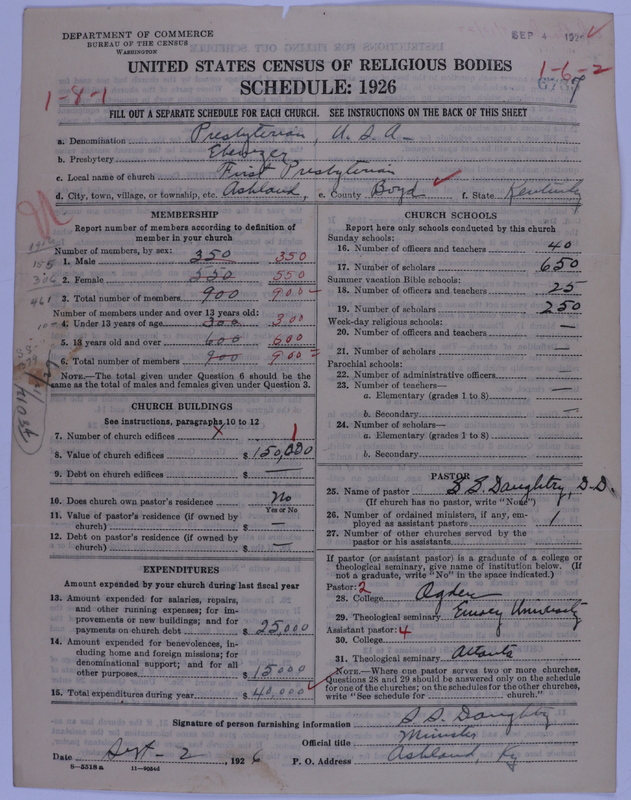 DEPARTMENT OF COMMERCE
BUREAU OF THE CENSUS
WASHINGTON
SEP 4 1926
UNITED STATES CENSUS OF RELIGIOUS BODIES
1-6-2
SCHEDULE: 1926
1-8-1
FILL OUT A SEPARATE SCHEDULE FOR EACH CHURCH. SEE INSTRUCTIONS ON THE BACK OF THIS SHEET
a. Denomination Presbyterian, U.S.A.
b. Presbytery Ebenezer
c. Local name of church First Presbyterian
d. City, town, village, or township, etc. Ashland, e. County Boyd f. State Kentucky
MEMBERSHIP
Report number of members according to definition of
member in your church
Number of members, by sex:
1. Male 350 350
2. Female 550 550
3. Total number of members 900 900
Number of members under and over 13 years old:
4. Under 13 years of age 300 300
5. 13 years old and over 600 600
6. Total number of members 900 900
NOTE.—The total given under Question 6 should be the
same as the total of males and females given under Question 3.
CHURCH BUILDINGS
See instructions, paragraphs 10 to 12
7. Number of church edifices X 1
8. Value of church edifices $ 150,000
9. Debt on church edifices $ —
10. Does church own pastor's residence No
Yes or No
11. Value of pastor's residence (if owned by
church) $ —
12. Debt on pastor's residence (if owned by
church) $ —
EXPENDITURES
Amount expended by your church during last fiscal year
13. Amount expended for salaries, repairs,
and other running expenses; for im-
provements or new buildings; and for
payments on church debt $ 25,000
14. Amount expended for benevolences, in-
cluding home and foreign missions; for
denominational support; and for all
other purposes $ 15000
15. Total expenditures during year $ 40,000
CHURCH SCHOOLS
Report here only schools conducted by this church
Sunday schools:
16. Number of officers and teachers 40
17. Number of scholars 650
Summer vacation Bible schools:
18. Number of officers and teachers 25
19. Number of scholars 250
Week-day religious schools:
20. Number of officers and teachers —
21. Number of scholars —
Parochial schools:
22. Number of administrative officers —
23. Number of teachers—
a. Elementary (grades 1 to 8) —
b. Secondary —
24. Number of scholars—
a. Elementary (grades 1 to 8)
b. Secondary
PASTOR
25. Name of pastor S. S. Daughtry, D.D.
(If church has no pastor, write "None")
26. Number of ordained ministers, if any, em-
ployed as assistant pastors 1
27. Number of other churches served by the
pastor or his assistants
If pastor (or assistant pastor) is a graduate of a college or
theological seminary, give name of institution below. (If
not a graduate, write "No" in the space indicated.)
Pastor: 2
28. College Ogden
29. Theological seminary Emory University
Assistant pastor: 4
30. College
31. Theological seminary Atlanta
NOTE.—Where one pastor serves two or more churches,
Questions 28 and 29 should be answered only on the schedule
for one of the churches; on the schedules for the other churches,
write "See schedule for church."
Signature of person furnishing information S. S. Daughtry
Official title Minister
Date Sept - 2, 1926 P. O. Address Ashland, Ky
8—5518a 11—9054d